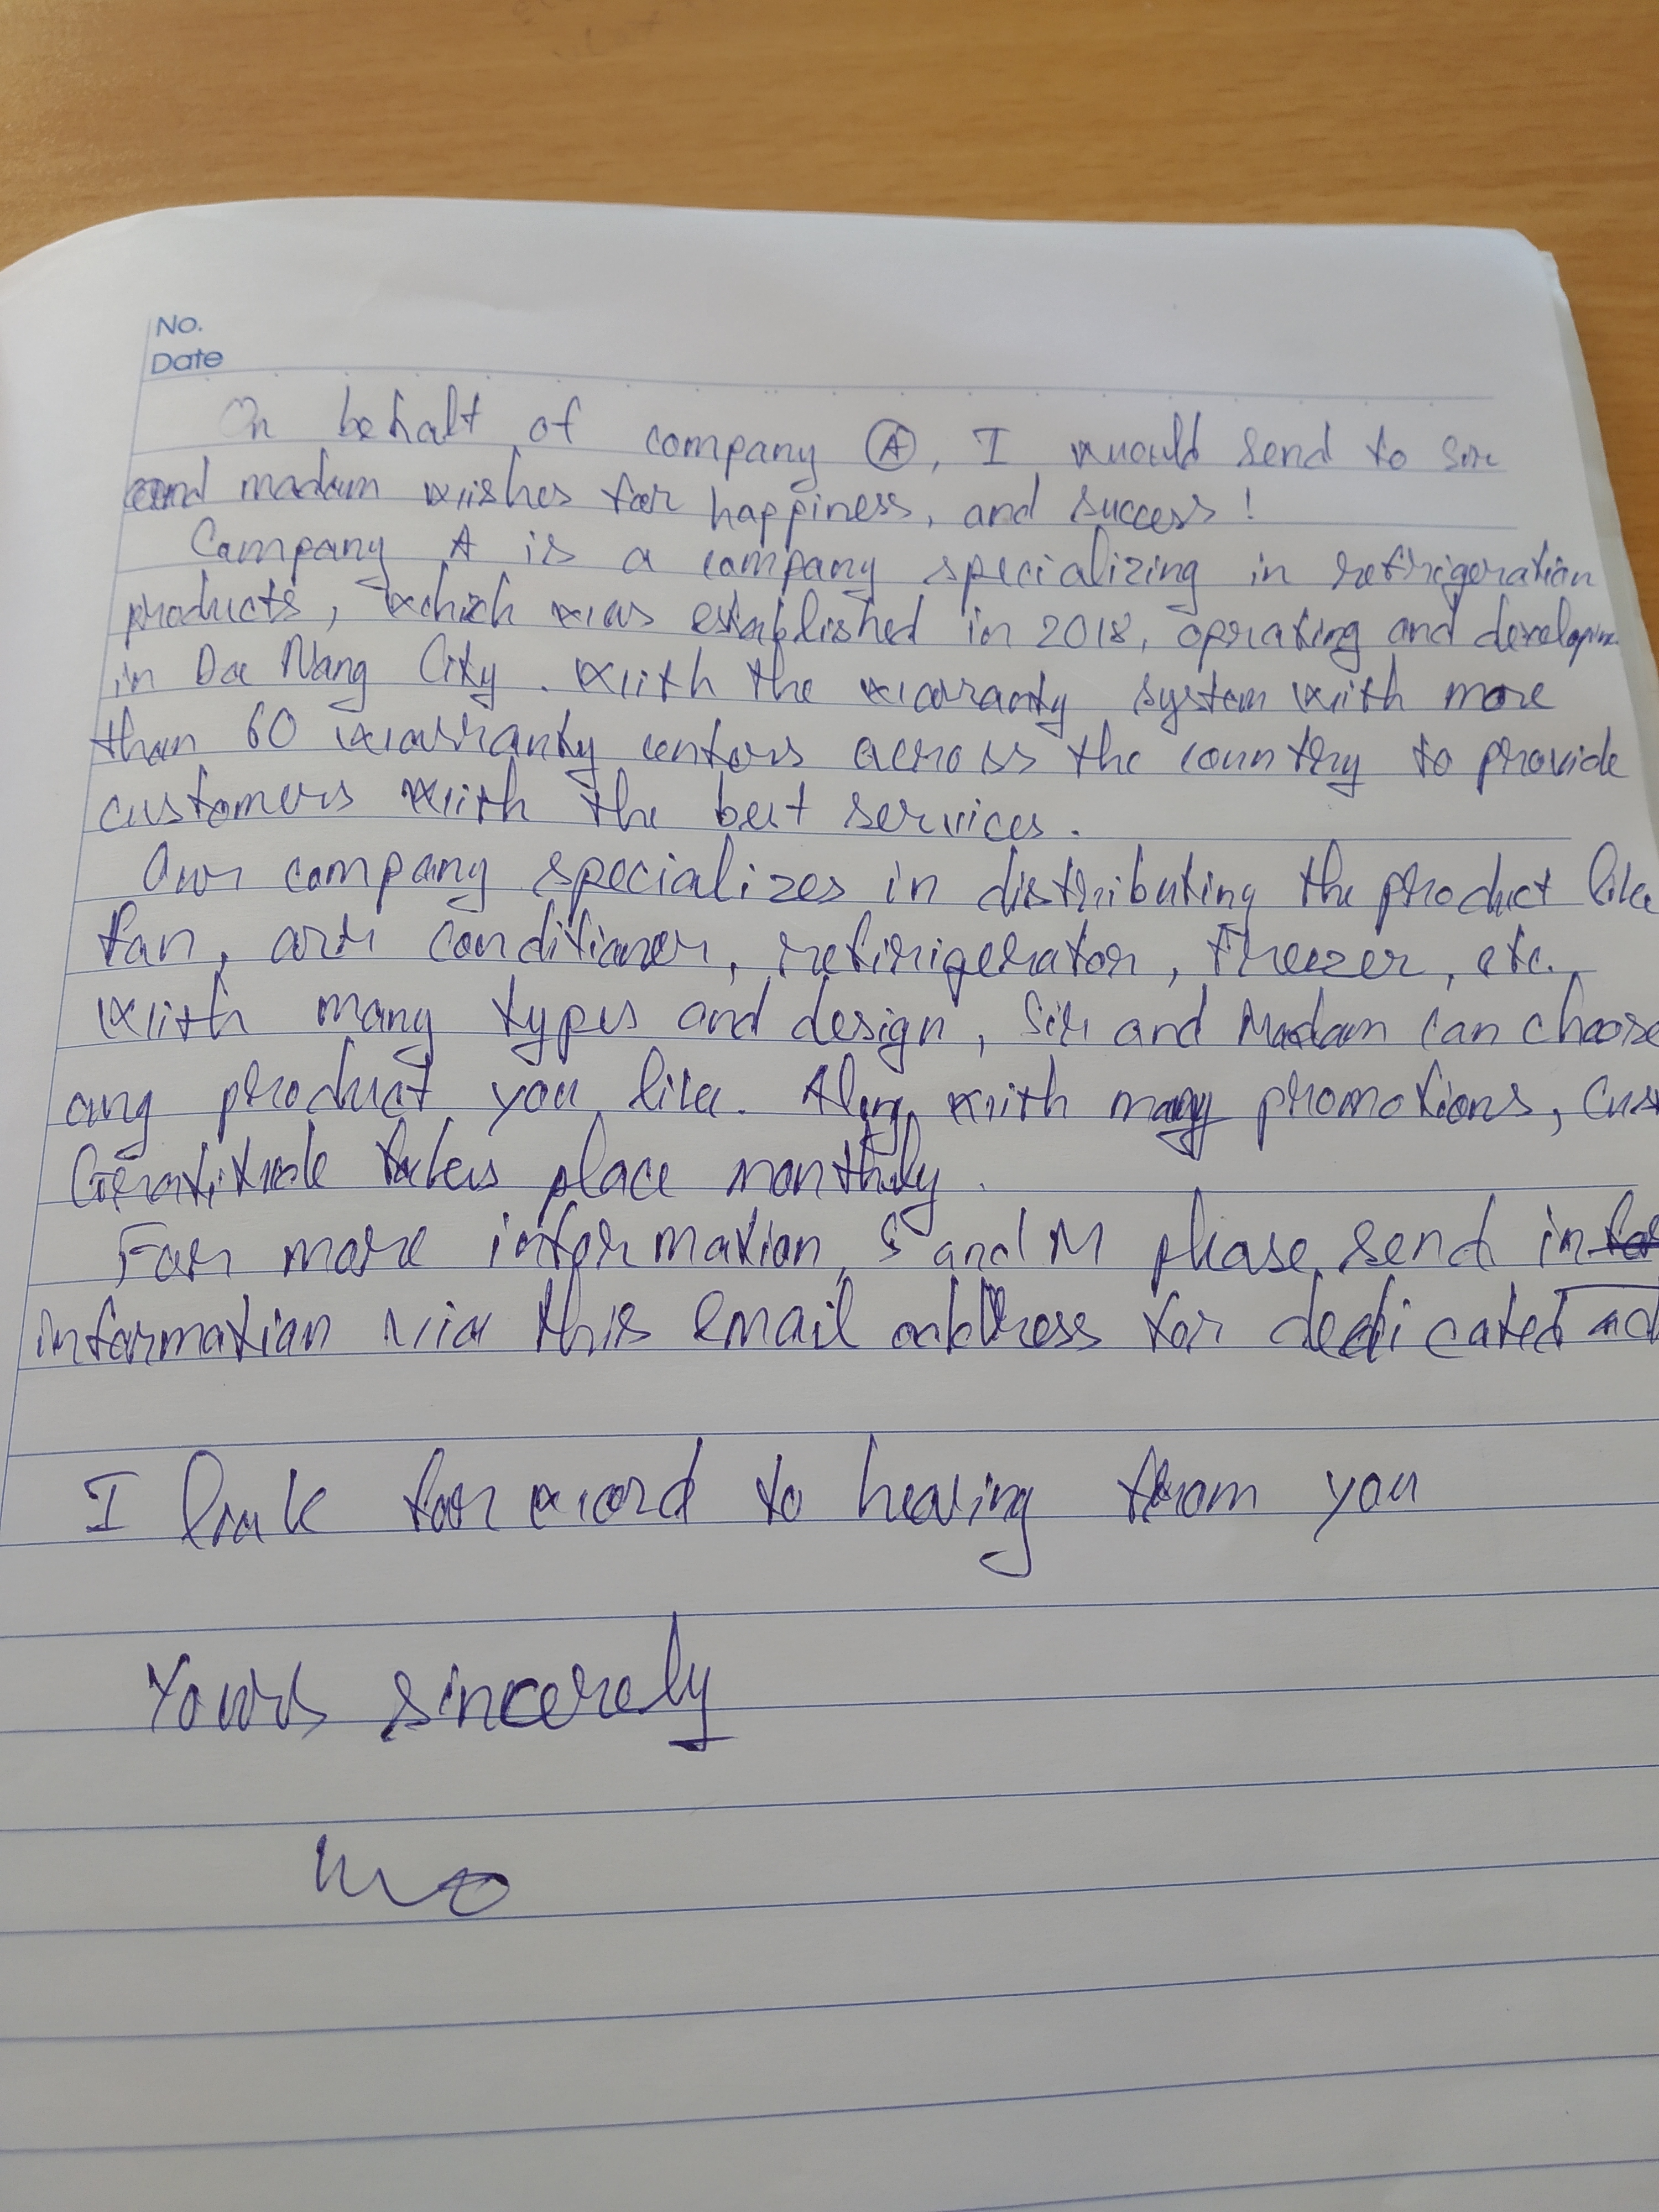 No.
Date
On behalf of company A, I would send to sir
and madam wishes for happiness, and success!
Company A is a company specializing in refrigeration
products, which was established in 2018, oprating and developin
in Da Nang City. With the warranty system with more
than 60 warranty centers across the country to provide
customers with the best services.
Our company specializes in distributing the product like
fan, air conditioner, refirigerator, Freezer, etc.
With many types and design, Sir and Madam can choose
any product you like. Along with many promotions, cus
Gratitude takes place monthly.
For more information, S and M please send in
information via this email address for dedicated ad
I look forward to hearing from you
Yours sincerely